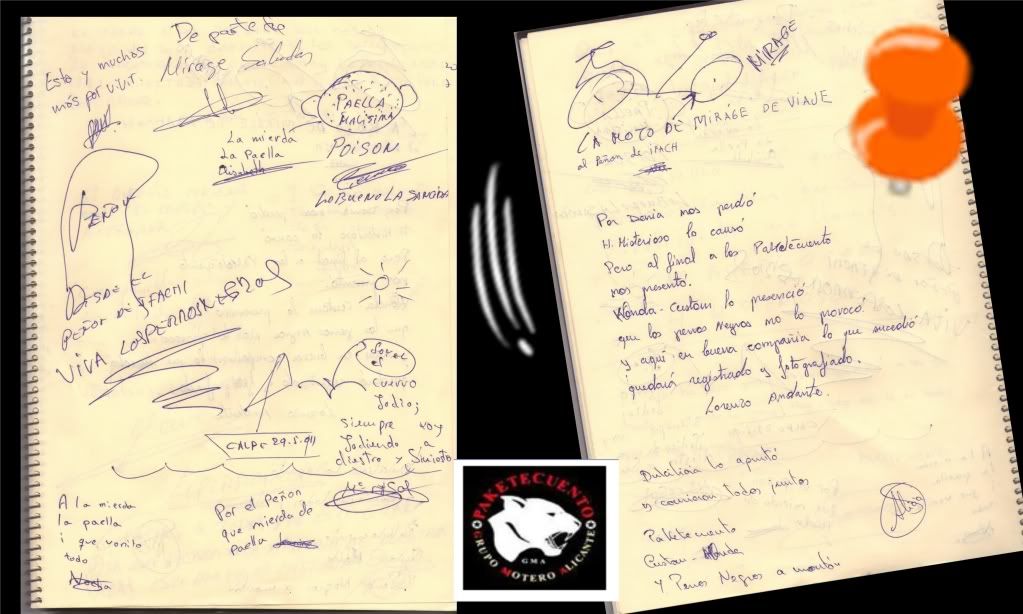 De parte de
Mirage Saludos
Esto y muchos
más por vivir.
PAELLA
MALISIMA
La mierda
La Paella
Elisabeth
POISON
LO BUENO LA SANGRIA
PEÑON
DESDE EL
PEÑON DE IFACHI
VIVA LOS PERROS NEGROS
Soy el
cuervo
Jodio;
siempre voy
Jodiendo a
diestro y siniestro
CALPE 29.5.
A la mierda
la paella
i que
todo
Por el Peñon
que mierda de
paella
MIRAGE
LA MOTO DE MIRAGE DE VIAJE
al Peñon de IFACH
Por Denia nos perdió
Mi Misterioso lo causó
Pero, al final a los Paketecuento
nos presentó.
Honda-Custom lo presenció
que los perros Negros no lo provocó.
y aquí en buena compañia lo que sucedió
quedará registrado y fotografiado.
Lorenzo Andante.
Dulcilina lo apuntó
y comieron todos juntos
Paketecuento
Custom-Honda
Y Perros Negros a montón
PAKETECUENTO
GMA
GRUPO MOTERO ALICANTE